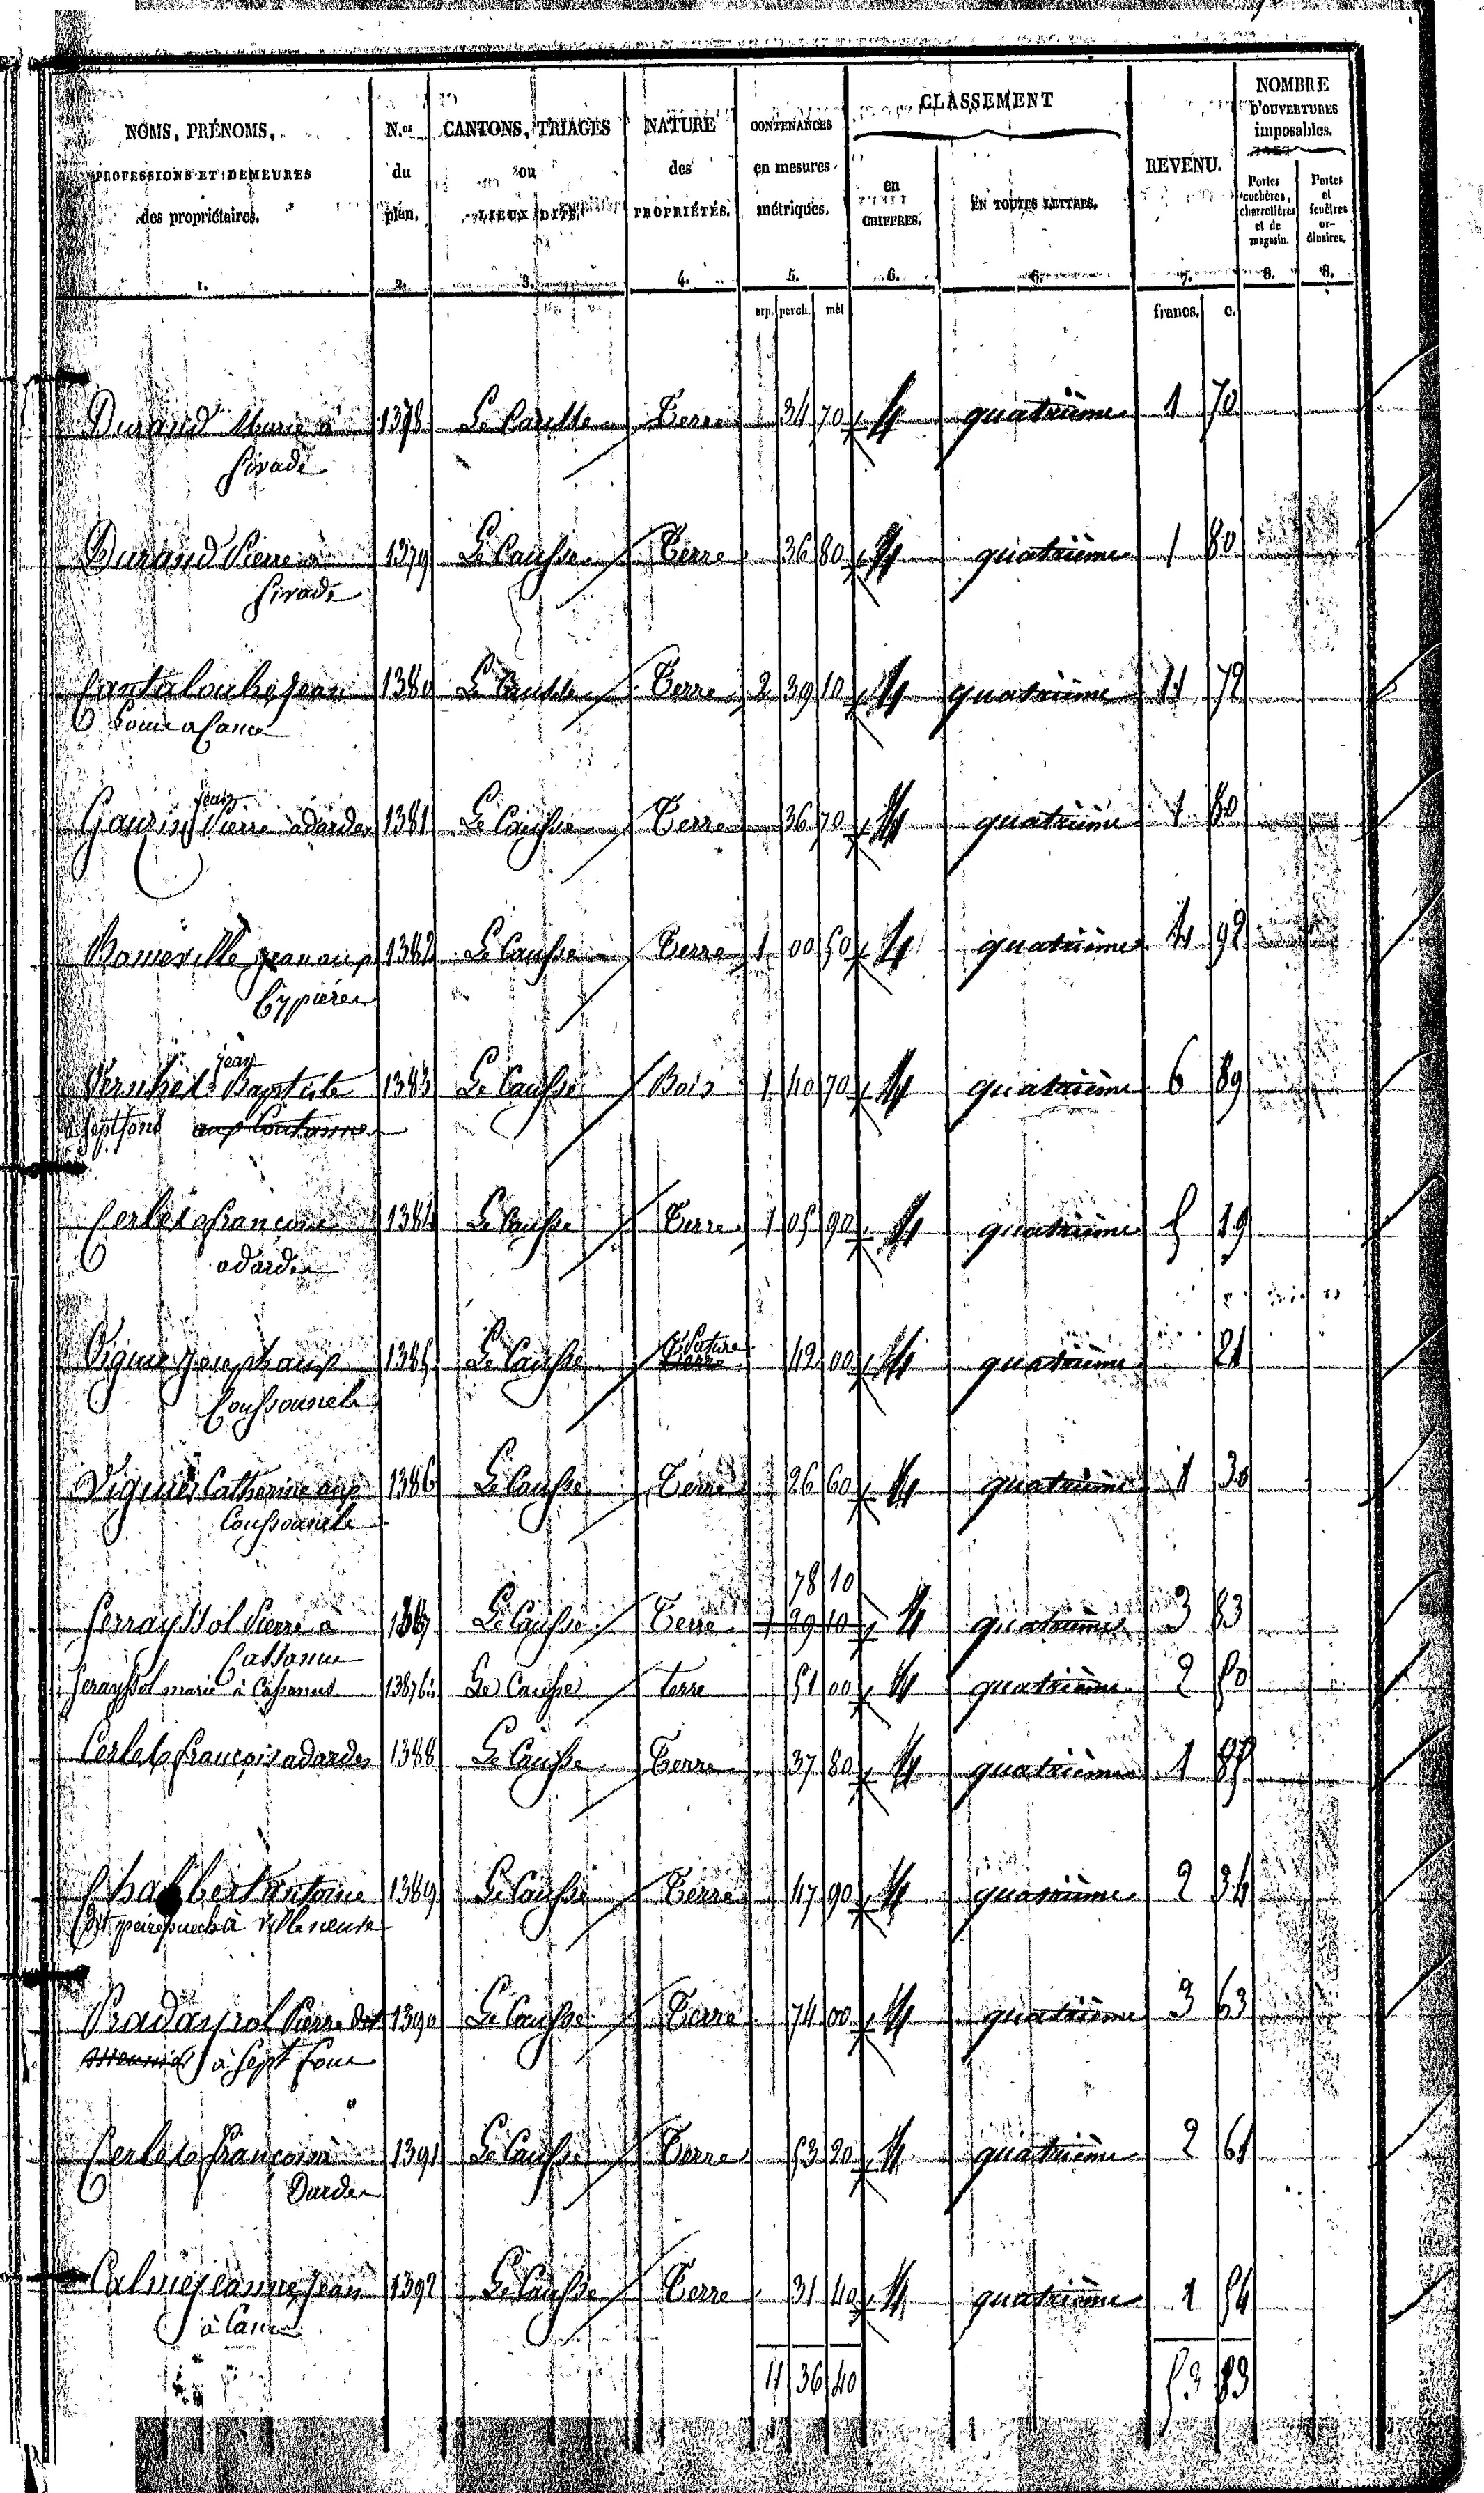 NOMS, PRÉNOMS, PROFESSIONS ET DEMEURES des propriétaires. N.os du plan. CANTONS, TRIAGES ou LIEUX DITS. NATURE des PROPRIÉTÉS. CONTENANCES en mesures métriques. CLASSEMENT en CHIFFRES. EN TOUTES LETTRES. REVENU. NOMBRE D'OUVERTURES imposables. Portes cochères, charretières et de magasin. Portes et fenêtres ordinaires.
1. 2. 3. 4. 5. 6. 6. 7. 8. 8.
arp. perch. mèt francs. c.
Durand Marie à 1378 Le Causse Terre 34 70 4 quatrième 1 70
Sivade
Durand Pierre à 1379 Le Causse Terre 36 80 4 quatrième 1 80
Sivade
Cantaloube Jean 1380 Le Causse Terre 2 39 10 4 quatrième 11 72
Louis a
jean
Pierre a dardes 1381 Le Causse Terre 36 70 4 quatrième 1 80
Bonneville Jean aux 1382 Le Causse Terre 1 00 50 4 quatrième 4 92
Cypières
jean
Baptiste 1383 Le Causse Bois 1 40 70 4 quatrième 6 89
à Septfons
françois 1384 Le Causse Terre 1 05 90 4 quatrième 5 19
a dardes
Vignes Joseph aux 1385 Le Causse Pature Terre 42 00 4 quatrième 21
Coussounels
Vignes Catherine aux 1386 Le Causse Terre 26 60 4 quatrième 1 30
Coussounels
78 10
Ferrayssol Pierre à 1387 Le Causse Terre 1 29 10 4 quatrième 3 83
Cassanus
Ferayssol marie à Cassanus 1387 bis Le Causse terre 51 00 4 quatrième 2 50
françois a dardes 1388 Le Causse Terre 37 80 4 quatrième 1 85
Chalbert antoine 1389 Le Causse Terre 47 90 4 quatrième 2 34
dit à Villeneuve
Pradayrol Pierre dit 1390 Le Causse Terre 74 00 4 quatrième 3 63
à Sept fons
françois à 1391 Le Causse Terre 53 20 4 quatrième 2 61
Dardes
Calmejeanne Jean 1392 Le Causse Terre 31 40 4 quatrième 1 54
à
11 36 40 53 83